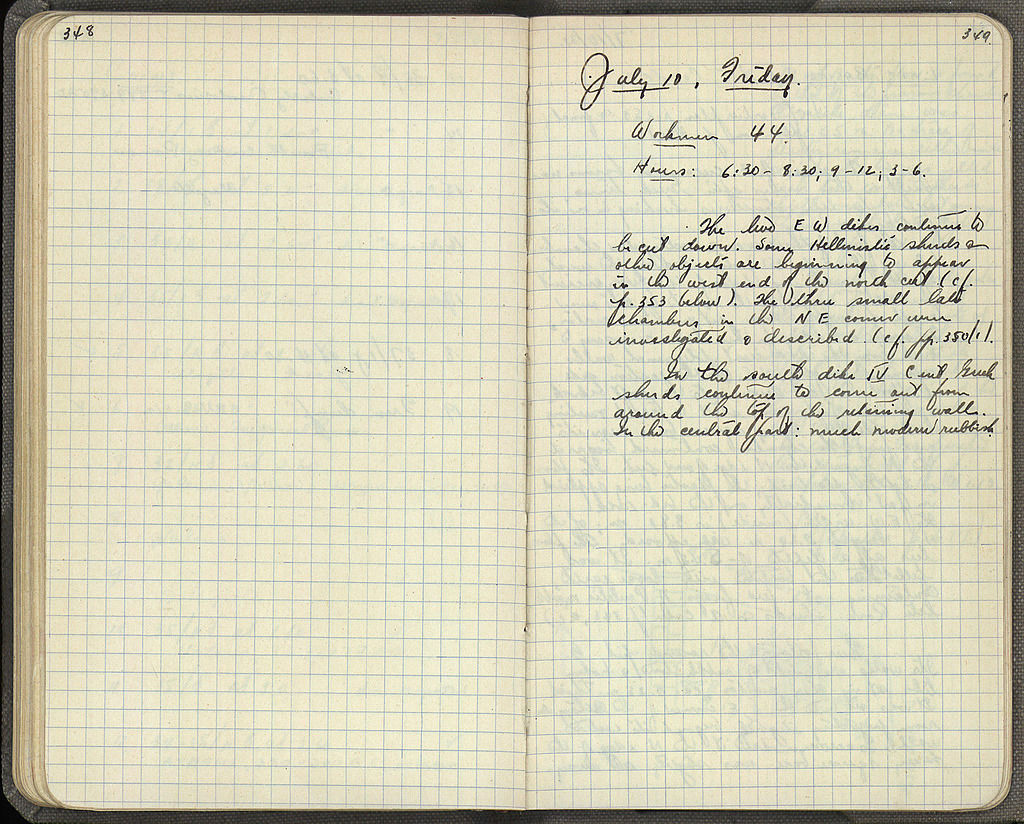 348
349.
July 10, Friday.
Workmen 44.
Hours: 6:30 - 8:30; 9 - 12; 3-6.
The two E W dikes continue to
be cut down. Some Hellenistic sherds &
other objects are beginning to appear
in the west end of the north cut (cf.
p. 353 below). The three small late
chambers in the NE corner were
investigated & described. (cf. pp. 350/1).
In the south dike IV Cent Greek
sherds continue to come out from
around the top of the retaining walls.
In the central part: much modern rubbish.